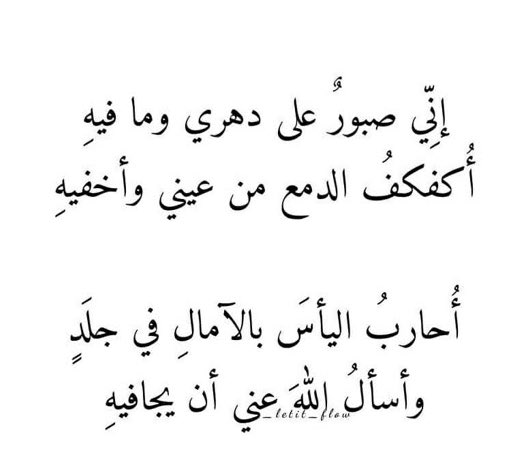 إنِّي صبورٌ على دهري وما فيهِ
أُكفكفُ الدمع من عيني وأخفيهِ
أُحاربُ اليأسَ بالآمالِ في جلَدٍ
وأسألُ اللهَ عني أن يجافيهِ
_letit_flow